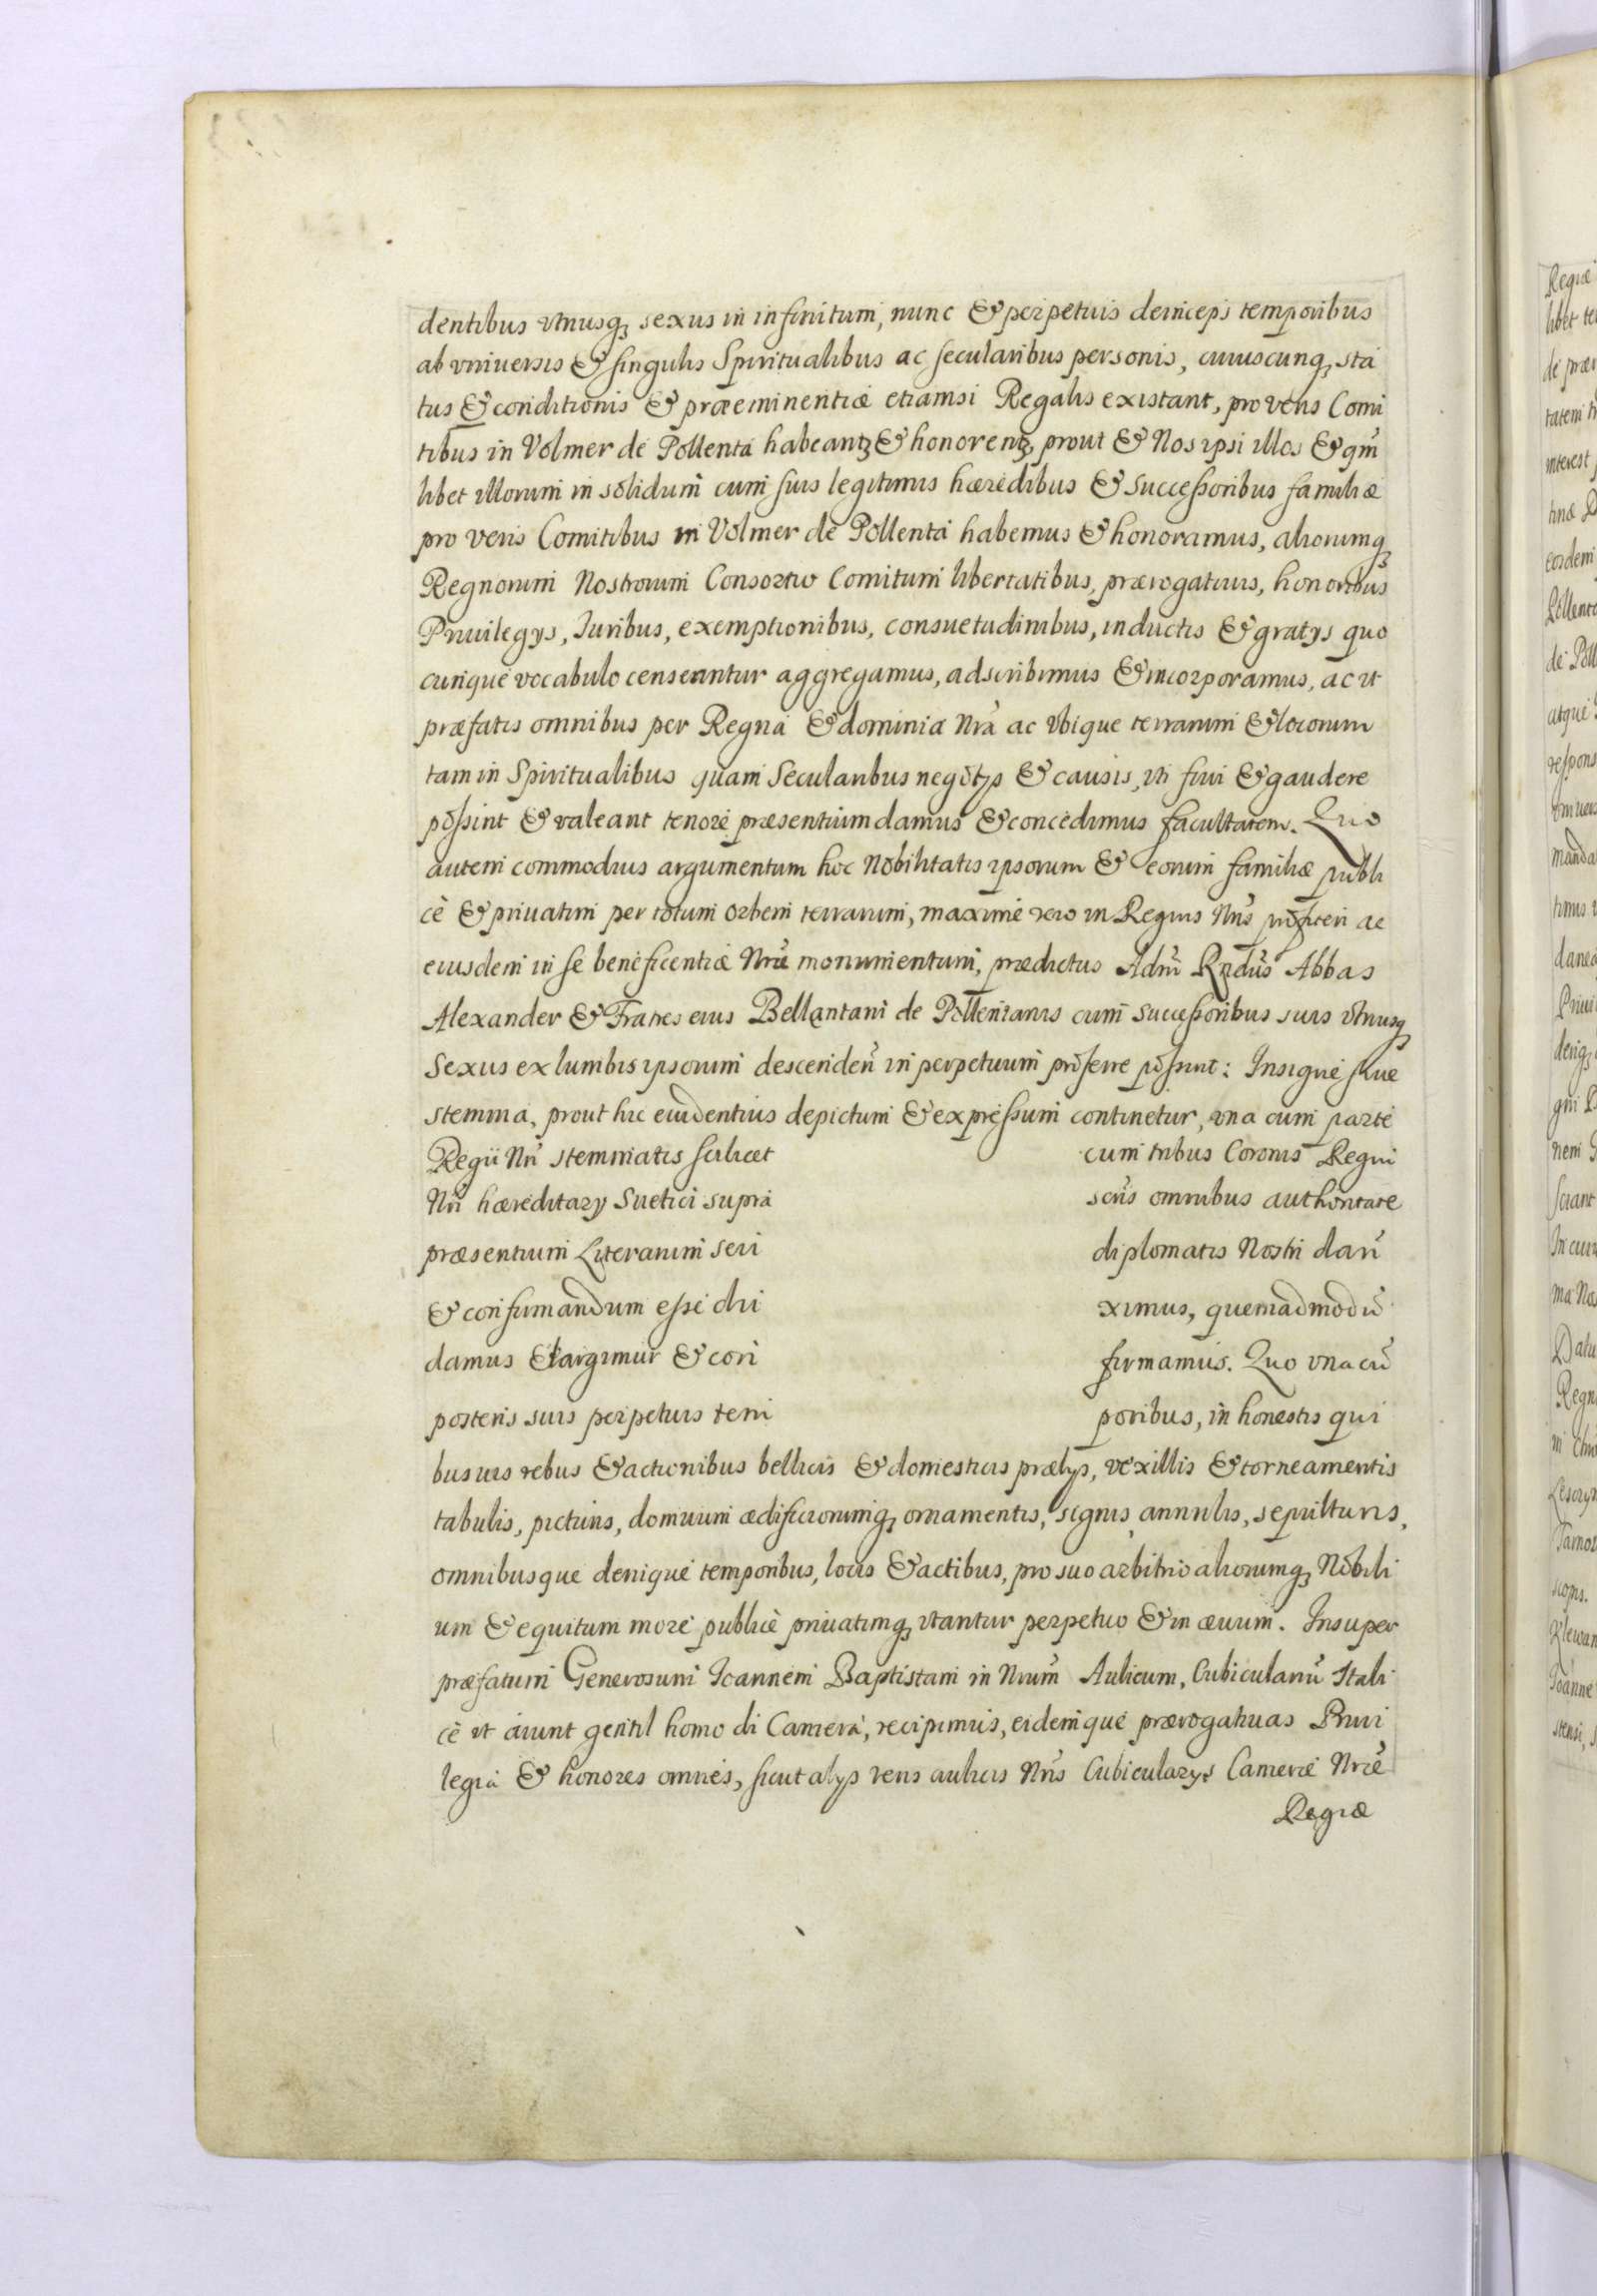 dentibus vtriusq₃ sexus in infinitum, nunc & perpetuis deinceps temporibus
ab vniuersis & singulis Spiritualibus ac secularibus personis, cuiuscunq₃ sta
tus & conditionis & præeminentiæ etiamsi Regalis existant, pro veris Comi
tibus in Volmer de Pollenta habeant₃ & honorent₃, prout & Nos ipsi illos & qm̃
libet illorum in solidum cum suis legitimis hæredibus & Successoribus familiæ
pro veris Comitibus in Volmer de Pollenta habemus & honoramus, aliorumq₃
Regnorum Nostrorum Consortio Comitum libertatibus, prærogatiuis, honoribus
Priuilegijs, Juribus, exemptionibus, consuetudinibus, inductis & gratijs quo
cunque vocabulo censeantur aggregamus, adscribimus & incorporamus, ac vt
præfatis omnibus per Regna & dominia Nrã ac vbique terrarum & locorum
tam in Spiritualibus quam Secularibus negotijs & causis, vti frui & gaudere
possint & valeant tenore præsentium damus & concedimus facultatem. Quo
autem commodius argumentum hoc Nobilitatis ipsorum & eorum familiæ publi
cè & priuatim per totum orbem terrarum, maximè vero in Regnis Nrĩs profiteri ac
eiusdem in se beneficentiæ Nrǣ monumentum, prædictus Adm̃ Rndũs Abbas
Alexander & Fratres eius Bellantani de Pollentanis cum Successoribus suis vtriusq₃
Sexus ex lumbis ipsorum descenden̄ in perpetuum proferre possint: Insigne siue
stemma, prout hic euidentius depictum & expressum continetur, vna cum parte
Regii Nrĩ stemmatis scilicet cum tribus Coronis Regni
Nrĩ hæreditarij Suetici supra scrĩs omnibus authoritate
præsentium Literarum seu diplomatis Nostri dan̄
& confirmandum esse du ximus, quemadmodũ
damus & largimur & con firmamus. Quo vna cũ
posteris suis perpetuis tem poribus, in honestis qui
busuis rebus & actionibus bellicis & domesticis prælijs, vexillis & torneamentis
tabulis, picturis, domuum ædificiorumq₃ ornamentis, signis, annulis, sepulturis,
omnibusque denique temporibus, locis & actibus, pro suo arbitrio aliorumq₃ Nobili
um & equitum more publicè priuatimq₃ vtantur perpetuo & in æuum. Insuper
præfatum Generosum Joannem Baptistam in Nrum̃ Aulicum, Cubicularium̃ Itali
cè vt aiunt gentil homo di Camera, recipimus, eidemque prærogatiuas Priui
legia & honores omnes, sicut alijs veris aulicis Nrĩs Cubicularijs Cameræ Nrǣ
Regiæ